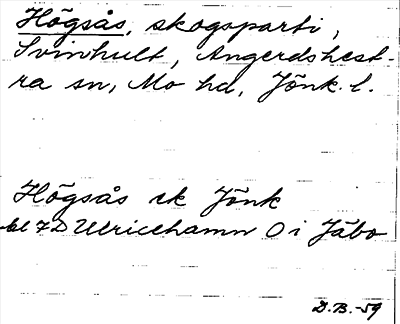 Högsås, skogsparti,
Svinhult, Angerdshest-
ra sn, Mo hd, Jönk. l.
Högsås ek Jönk
bl 7D Ulricehamn O i Jäbo
D.B.-59